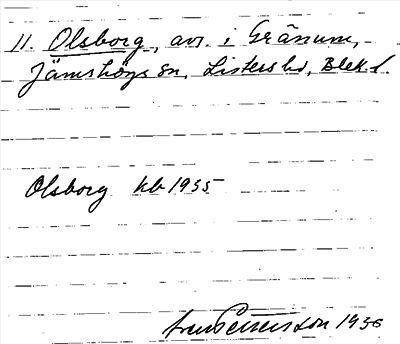 11. Olsborg, avs. i Gränum,
Jämshögs sn, Listers hd, Blek. l.
Olsborg kb 1935
1936